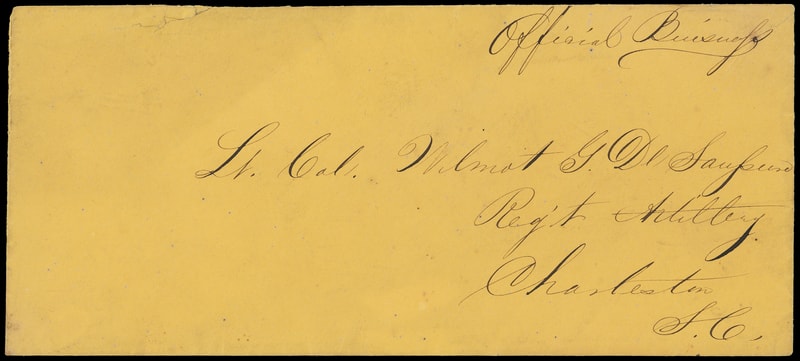 Official Buisness
Lt. Col. Wilmot G. De Saussure
Reg't Artillery
Charleston
S.C.